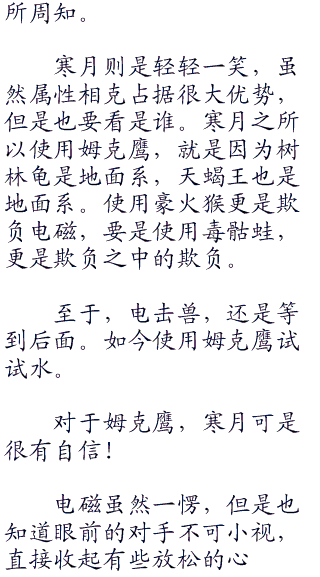 所周知。
寒月则是轻轻一笑，虽
然属性相克占据很大优势，
但是也要看是谁。寒月之所
以使用姆克鹰，就是因为树
林龟是地面系，天蝎王也是
地面系。使用豪火猴更是欺
负电磁，要是使用毒骷蛙，
更是欺负之中的欺负。
至于，电击兽，还是等
到后面。如今使用姆克鹰试
试水。
对于姆克鹰，寒月可是
很有自信！
电磁虽然一愣，但是也
知道眼前的对手不可小视，
直接收起有些放松的心